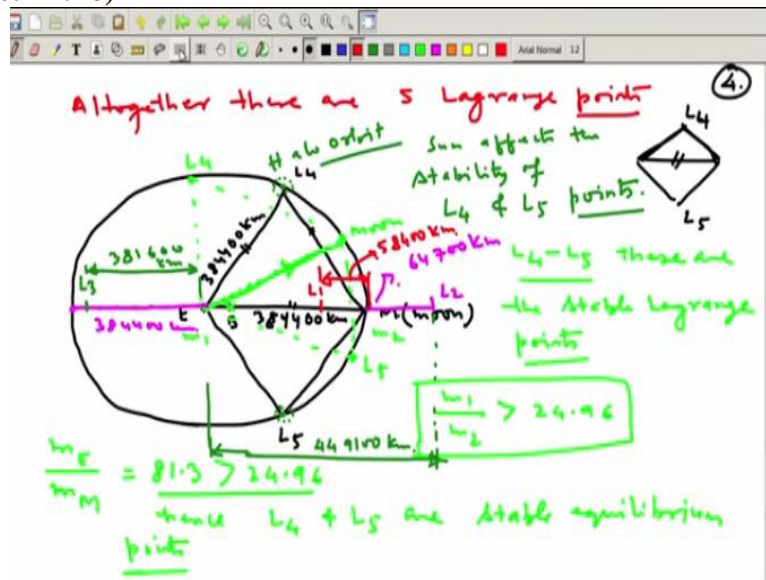 Arial Normal 12
4.
Altogether there are 5 Lagrange points
L4
L5
Halo orbit
Sun affects the
stability of
L4 & L5 points.
L4
L4
moon
384400km
381600
km
58400km
64700km
L3
L1
L2
E
G
384400km
384400km
m1
M(moon)
m2
L5
L5
449100 km
L4-L5 these are
the stable Lagrange
points
m1/m2 > 24.96
mE/mM = 81.3 > 24.96
hence L4 & L5 are stable equilibrium
points